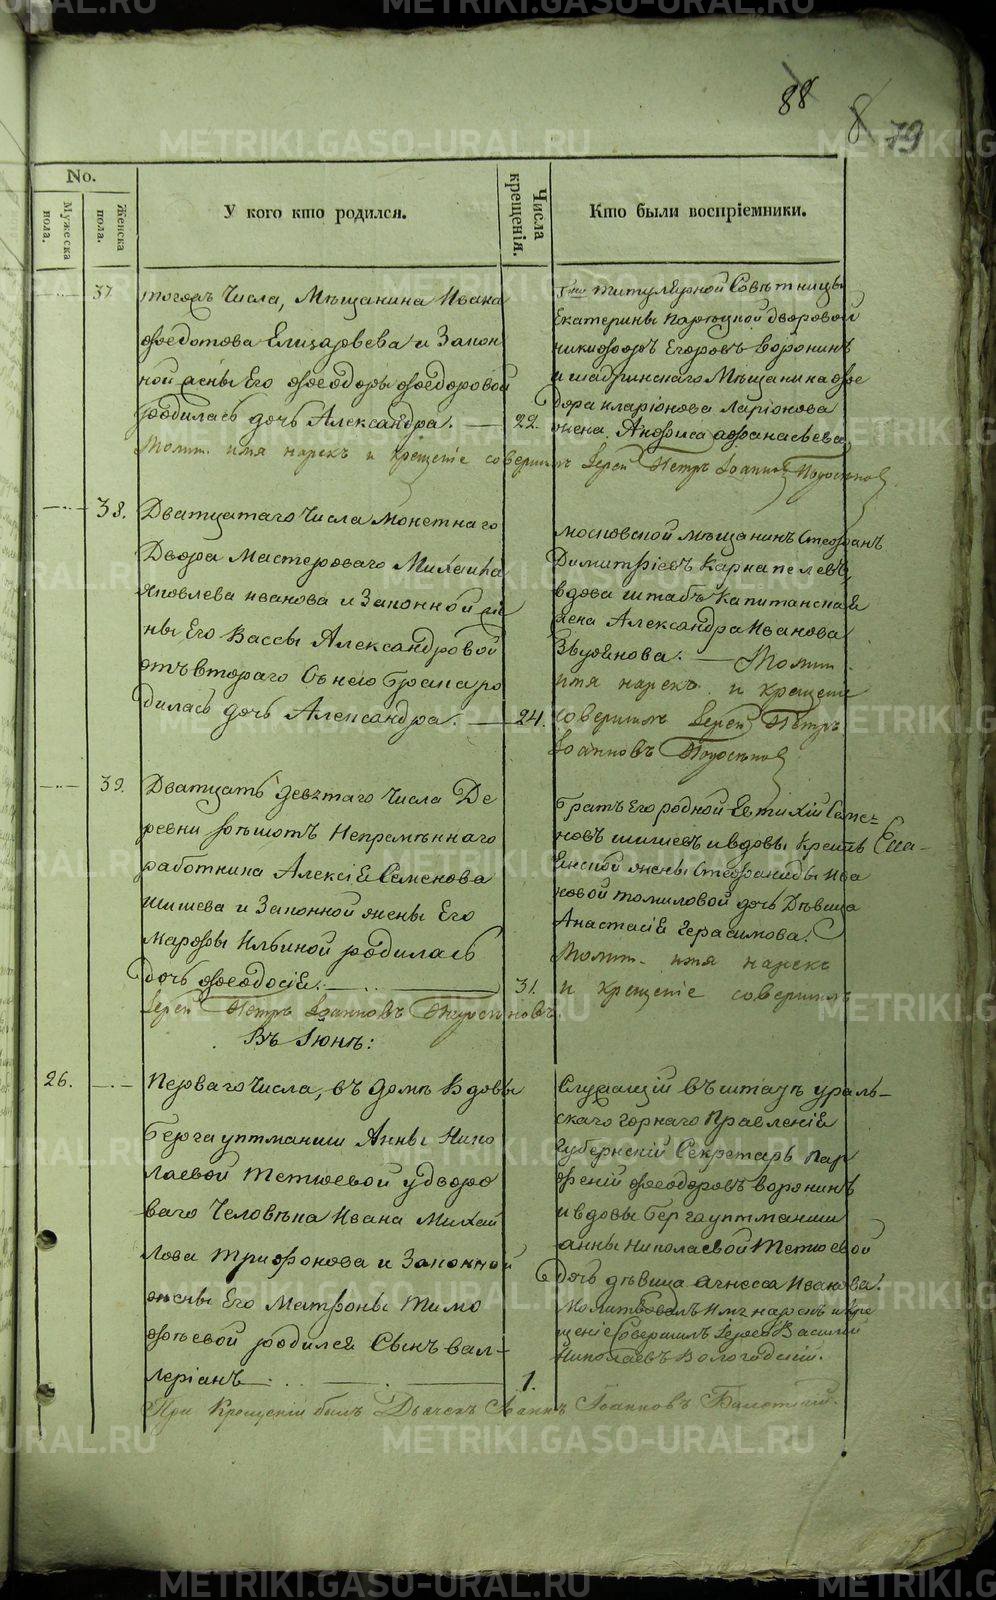 88
8
79
No.
Мужеска пола.
Женска пола.
У кого кто родился.
Числа крещенія.
Кто были воспріемники.
37
тогожъ Числа, Мѣщанина Ивана
Ѳедотова Елизарьева и Закон
ной жены Его Ѳеодоры Ѳедоровой
родилась дочь Александра.
22.
Гжи титулярной Совѣтницы
Екатерины дворовой
Никифоръ Егоровъ Воронинъ
и шадринскаго Мѣщанина Ѳео
дора Иларіонова Ларіонова
жена Анфиса Афанасьева
Молит. имя нарекъ и крещеніе совершилъ Іерей Петръ Іоанновъ
38.
Дватцатаго Числа монетнаго
Двора Мастероваго Михаила
Яковлева Иванова и Законной же
ны Его Вассы Александровой
отъ втораго съ нею брака ро
дилась дочь Александра.
24.
московской мѣщанинъ Стефанъ
Димитріевъ
вдова штабъ Капитанская
жена Александра Иванова
Молит.
имя нарекъ и крещеніе
совершилъ Іерей Петръ
Іоанновъ
39.
Дватцать девятаго Числа Де
ревни Непремѣннаго
работника Алексія Семенова
Шишева и Законной жены Его
Марфы Ильиной родилась
дочь Ѳеодосія.
31.
братъ Его родной Евтихій Семе
новъ шишевъ и вдовы Крестья
женской жены Стефаниды Ива
новой томиловой дочь Дѣвица
Анастасія Герасимова.
Молит. имя нарекъ
и крещеніе совершилъ
Іерей Петръ Іоанновъ
Въ Іюнѣ:
26.
Перваго Числа, въ домѣ вдовы
Бергауптманши Анны Нико
лаевой Тетюевой у дворо
ваго Человѣка Ивана Михай
лова Трифонова и Законной
жены Его Матроны Тимо
фѣевой родился Сынъ Вал-
леріанъ
1.
Служащій въ штатѣ ураль-
скаго горнаго Правленія
Губернскій Секретарь Пар
феній Ѳеодоровъ Воронинъ
и вдовы бергауптманши
Анны Николаевой Тетюевой
дочь дѣвица Агнесса Иванова.
Молитвовалъ имя нарекъ и кре
щеніе Совершилъ Іерей Василій
Николаевъ Вологодскій.
При Крещеніи былъ Дьячекъ Іоаннъ Іоанновъ
METRIKI.GASO-URAL.RU